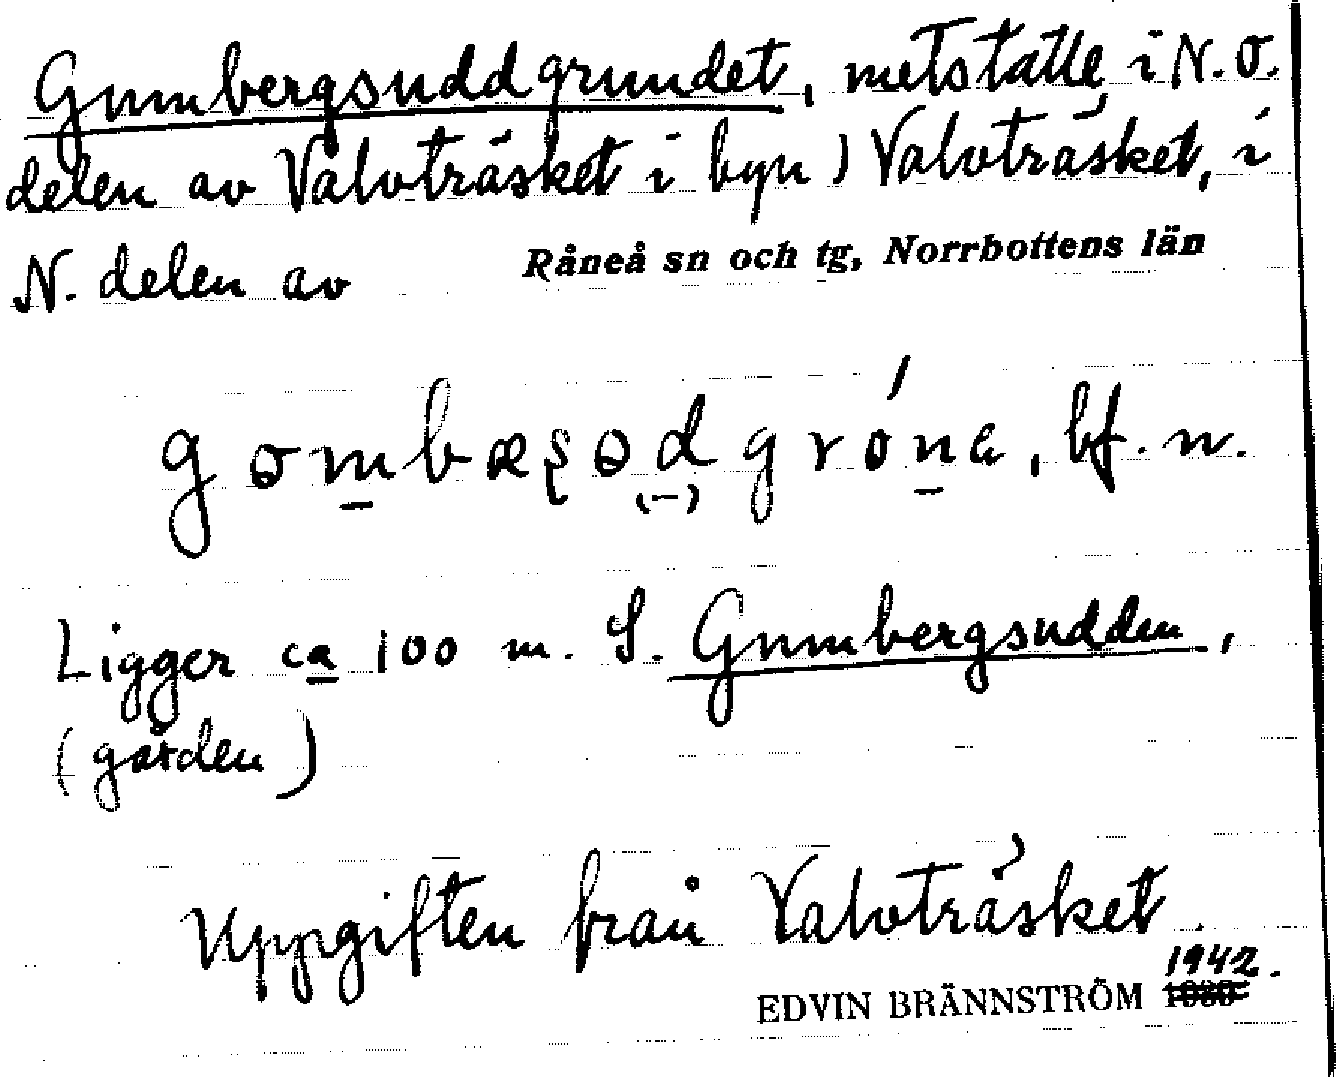 Gumbergsuddgrundet, metställe i N.O.
delen av Valvträsket i byn Valvträsket, i
N. delen av Råneå sn och tg, Norrbottens län
bf. n.
Ligger ca 100 m. S. Gumbergsudden,
(gården)
Uppgiften från Valvträsket.
1942.
EDVIN BRÄNNSTRÖM